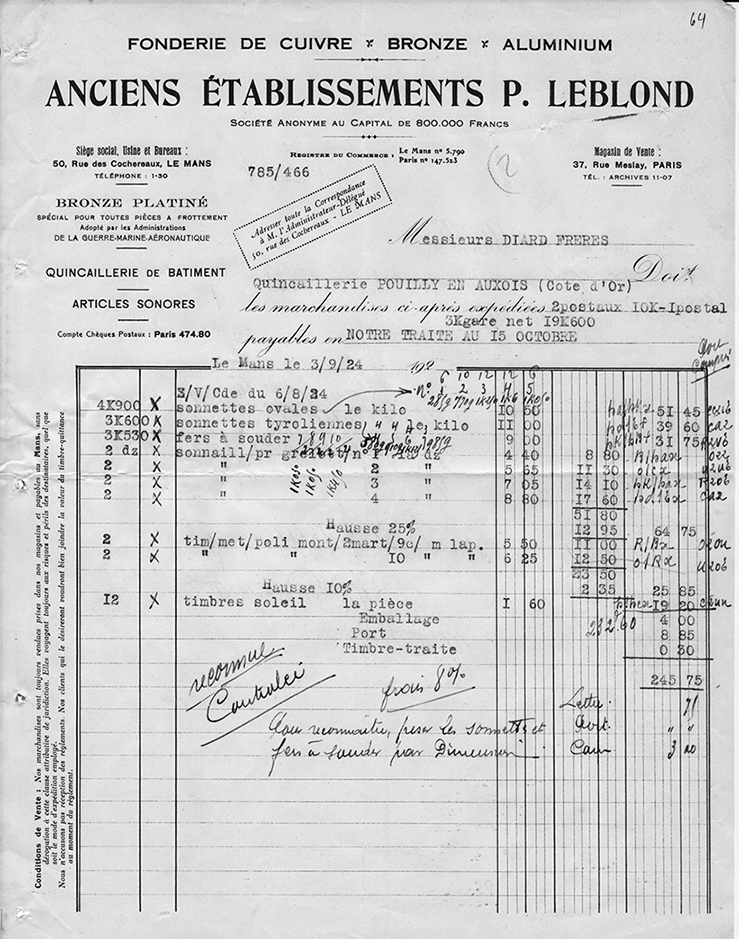 64
FONDERIE DE CUIVRE × BRONZE × ALUMINIUM
ANCIENS ÉTABLISSEMENTS P. LEBLOND
SOCIÉTÉ ANONYME AU CAPITAL DE 800.000 FRANCS
Siège social, Usine et Bureaux :
50, Rue des Cochereaux, LE MANS
TÉLÉPHONE : 1-30
REGISTRE DU COMMERCE : Le Mans nº 5.790
Paris nº 147.523
(2
Magasin de Vente :
37, Rue Meslay, PARIS
TÉL. : ARCHIVES 11-07
785/466
BRONZE PLATINÉ
SPÉCIAL POUR TOUTES PIÈCES A FROTTEMENT
Adopté par les Administrations
DE LA GUERRE-MARINE-AÉRONAUTIQUE
Adresser toute la Correspondance
à M. l'Administrateur-Délégué
50, rue des Cochereaux - LE MANS
Messieurs DIARD FRERES
QUINCAILLERIE DE BATIMENT
ARTICLES SONORES
Compte Chèques Postaux : Paris 474.80
Doit
Quincaillerie POUILLY EN AUXOIS (Cote d'Or)
les marchandises ci-après expédiées 2postaux IOK-Ipostal
3Kgare net I9K600
payables en NOTRE TRAITE AU I5 OCTOBRE
Le Mans le 3/9/24 192
6 10 12 12 6
Nº 1 2 3 4 5
S/V/Cde du 6/8/24
4K900 X sonnettes ovales le kilo IO 50 5I 45
3K600 X sonnettes tyroliennes le kilo II 00 39 60
3K530 X fers à souder 7 8 9 10 9 00 3I 75
2 dz X sonnaill/pr grelot/n° I la dz 4 40 8 80
2 X " 2 " 5 65 II 30
2 X " 3 " 7 05 I4 I0
2 X " 4 " 8 80 I7 60
5I 80
Hausse 25% I2 95 64 75
2 X tim/met/poli mont/2mart/9c/ m lap. 5 50 II 00
2 X " " IO " m 6 25 I2 50
23 50
Hausse IO% 2 35 25 85
I2 X timbres soleil la pièce I 60 I9 20
Emballage 232.60 4 00
Port 8 85
Timbre-traite 0 30
245 75
reconnue
Controlei
frais 8%
Pour reconnaître, peser les sonnettes et
fers à souder par Dimension
Lettre 71
Avit " "
Cam 3
Conditions de Vente : Nos marchandises sont toujours rendues prises dans nos magasins et payables au Mans, sans
dérogation à cette clause attributive de juridiction. Elles voyagent toujours aux risques et périls des destinataires, quel que
soit le mode d'expédition employé.
Nous n'accusons pas réception des règlements. Nos clients qui le désireront voudront bien joindre la valeur du timbre-quittance
au moment du règlement.